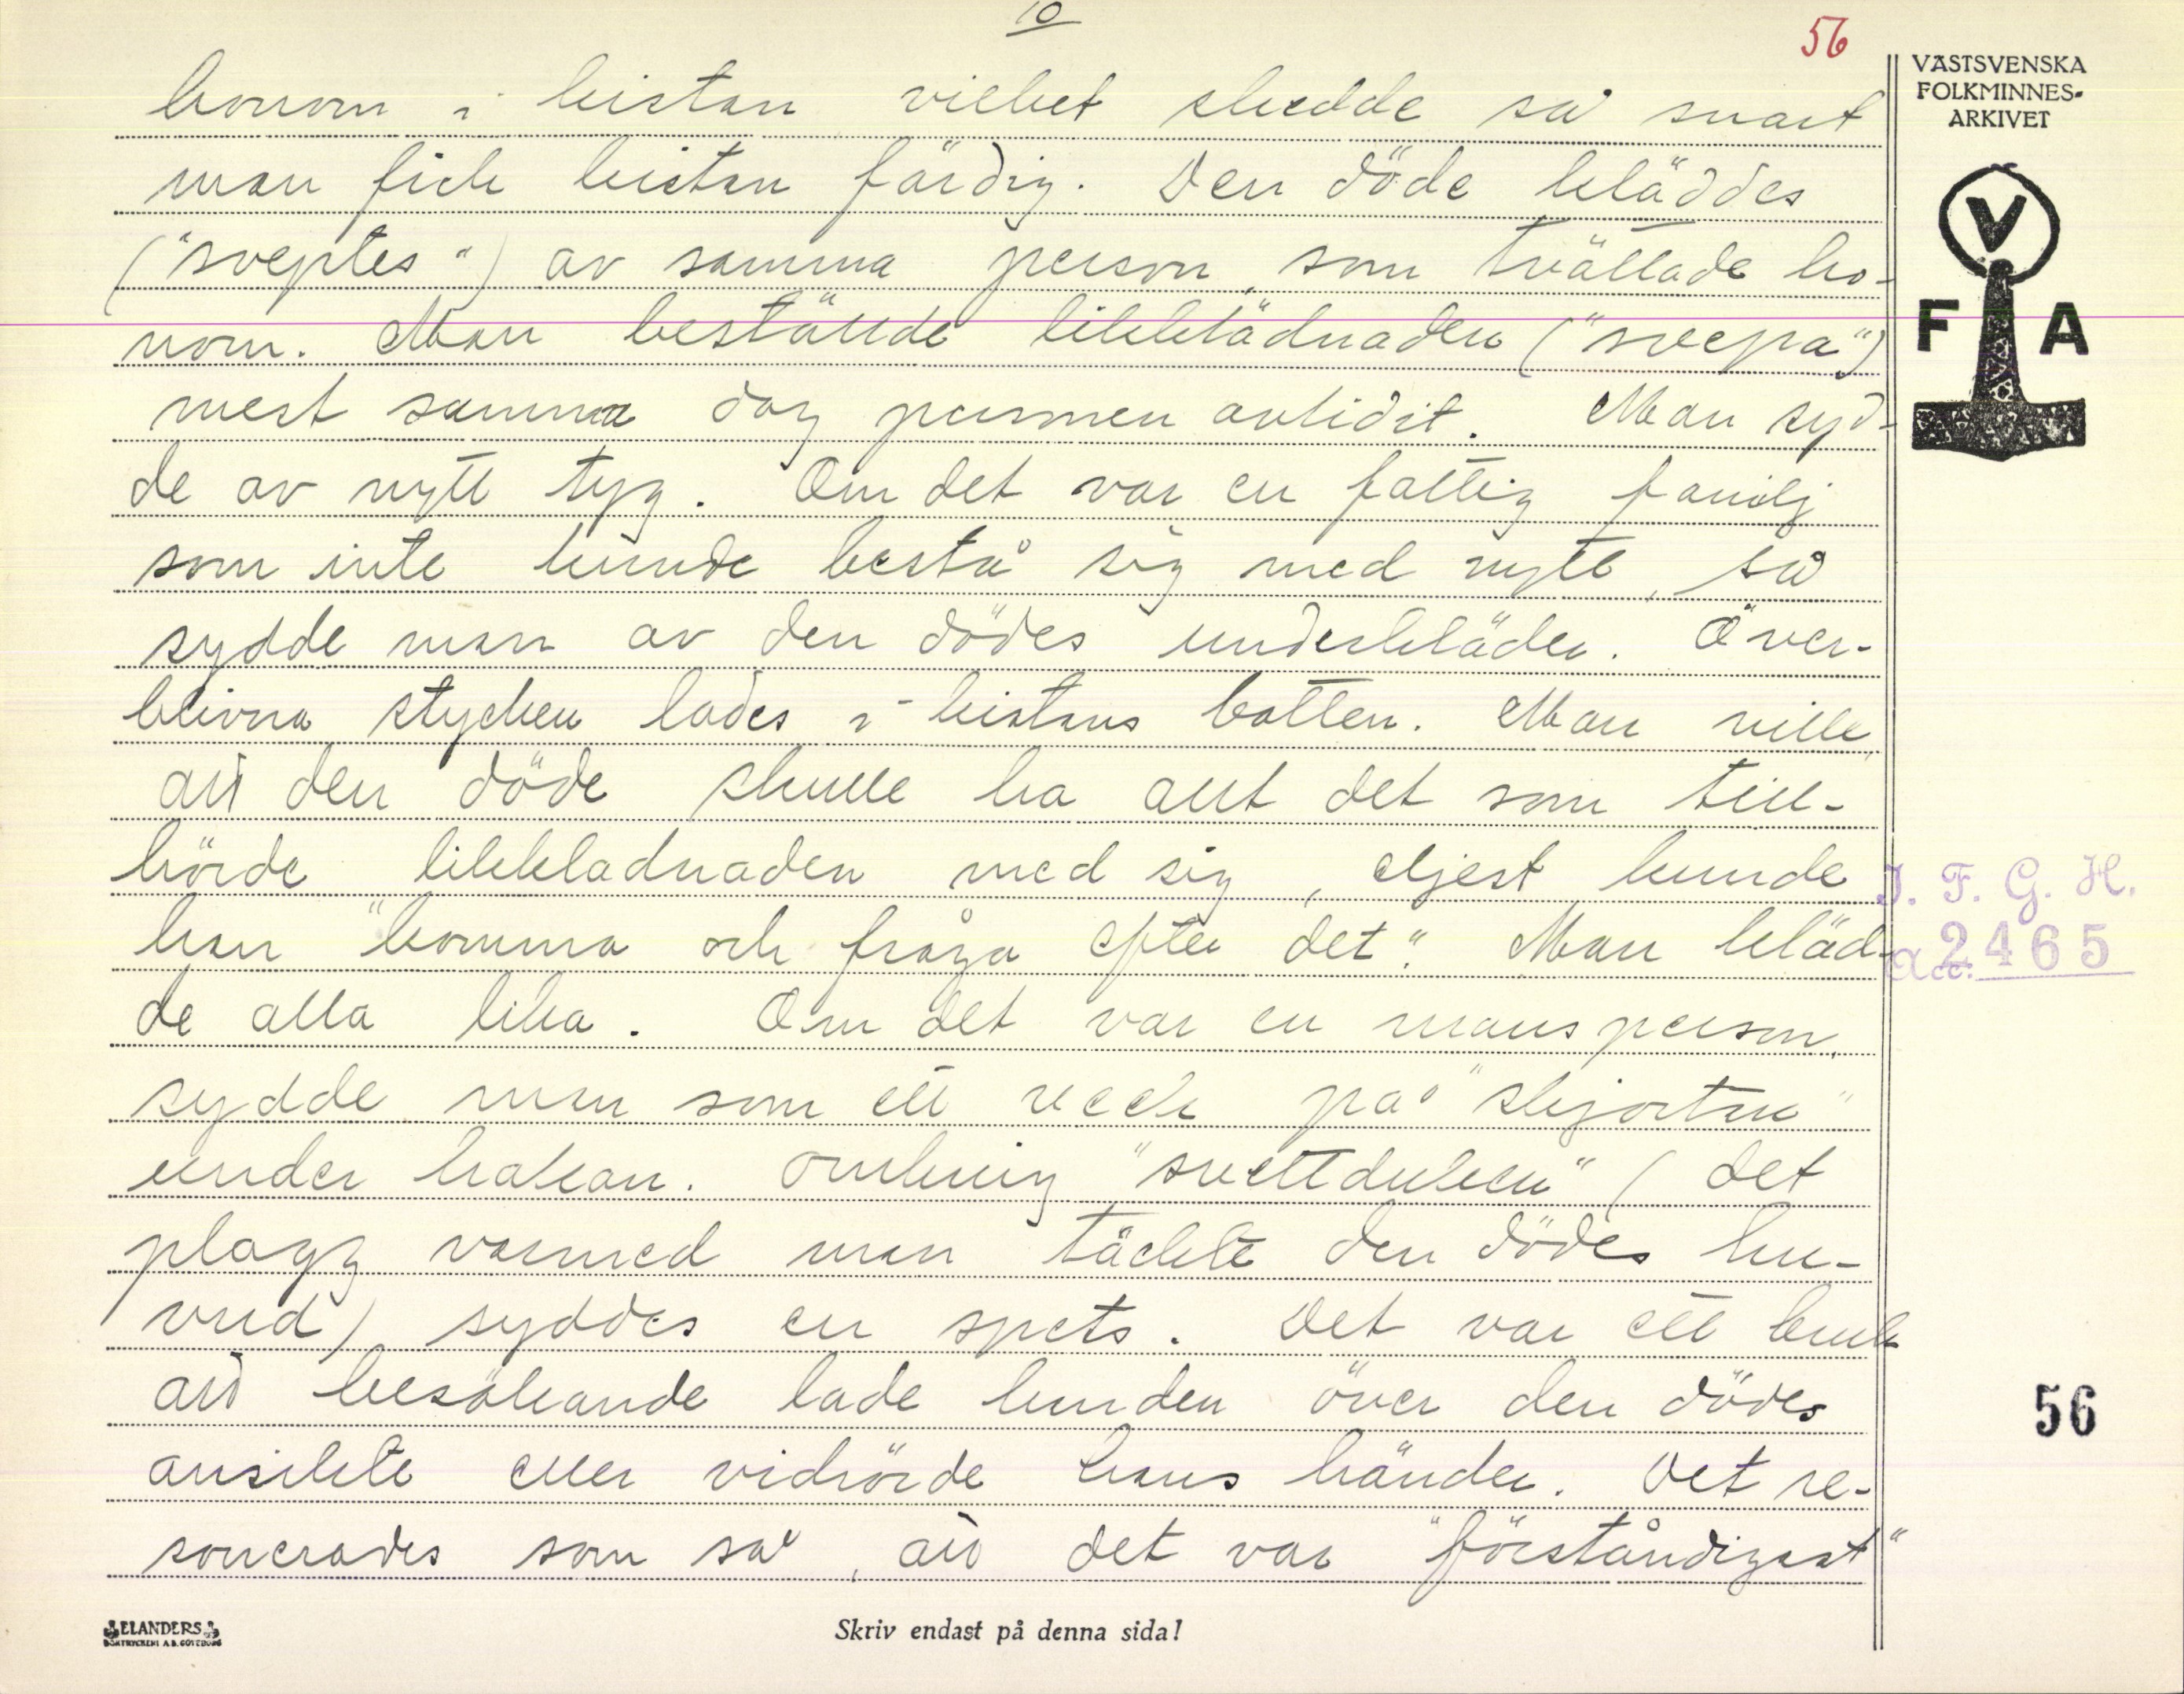 10
56
VÄSTSVENSKA
FOLKMINNES-
ARKIVET
honom i kistan vilket skedde så snart
man fick kistan färdig. Den döde kläddes
("sveptes") av samma person, som tvättade ho-
nom. Man beställde likklädnaden ("svepa")
mest samma dag personen avlidit. Man syd-
de av nytt tyg. Om det var en fattig familj
som inte kunde bestå sig med nytt, så
sydde man av den dödes underkläder. Över-
blivna stycken lades i kistans botten. Man ville,
att den döde skulle ha allt det som till-
hörde likkladnaden med sig, eljest kunde
han "komma och fråga efter det". Man kläd-
de alla lika. Om det var en mansperson,
sydde man som ett veck på "skjortan"
under hakan. Omkring "svettduken" (det
plagg varmed man täckte den dödes hu-
vud) syddes en spets. Det var ett bruk
att besökande lade handen över den dödes
ansikte eller vidrörde hans händer. Det re-
sonerades som så, att det var "förståndigast"
V
F A
I. F. G. H.
Acc. 2465
56
ELANDERS
BOKTRYCKERI A.B. GÖTEBORG
Skriv endast på denna sida!